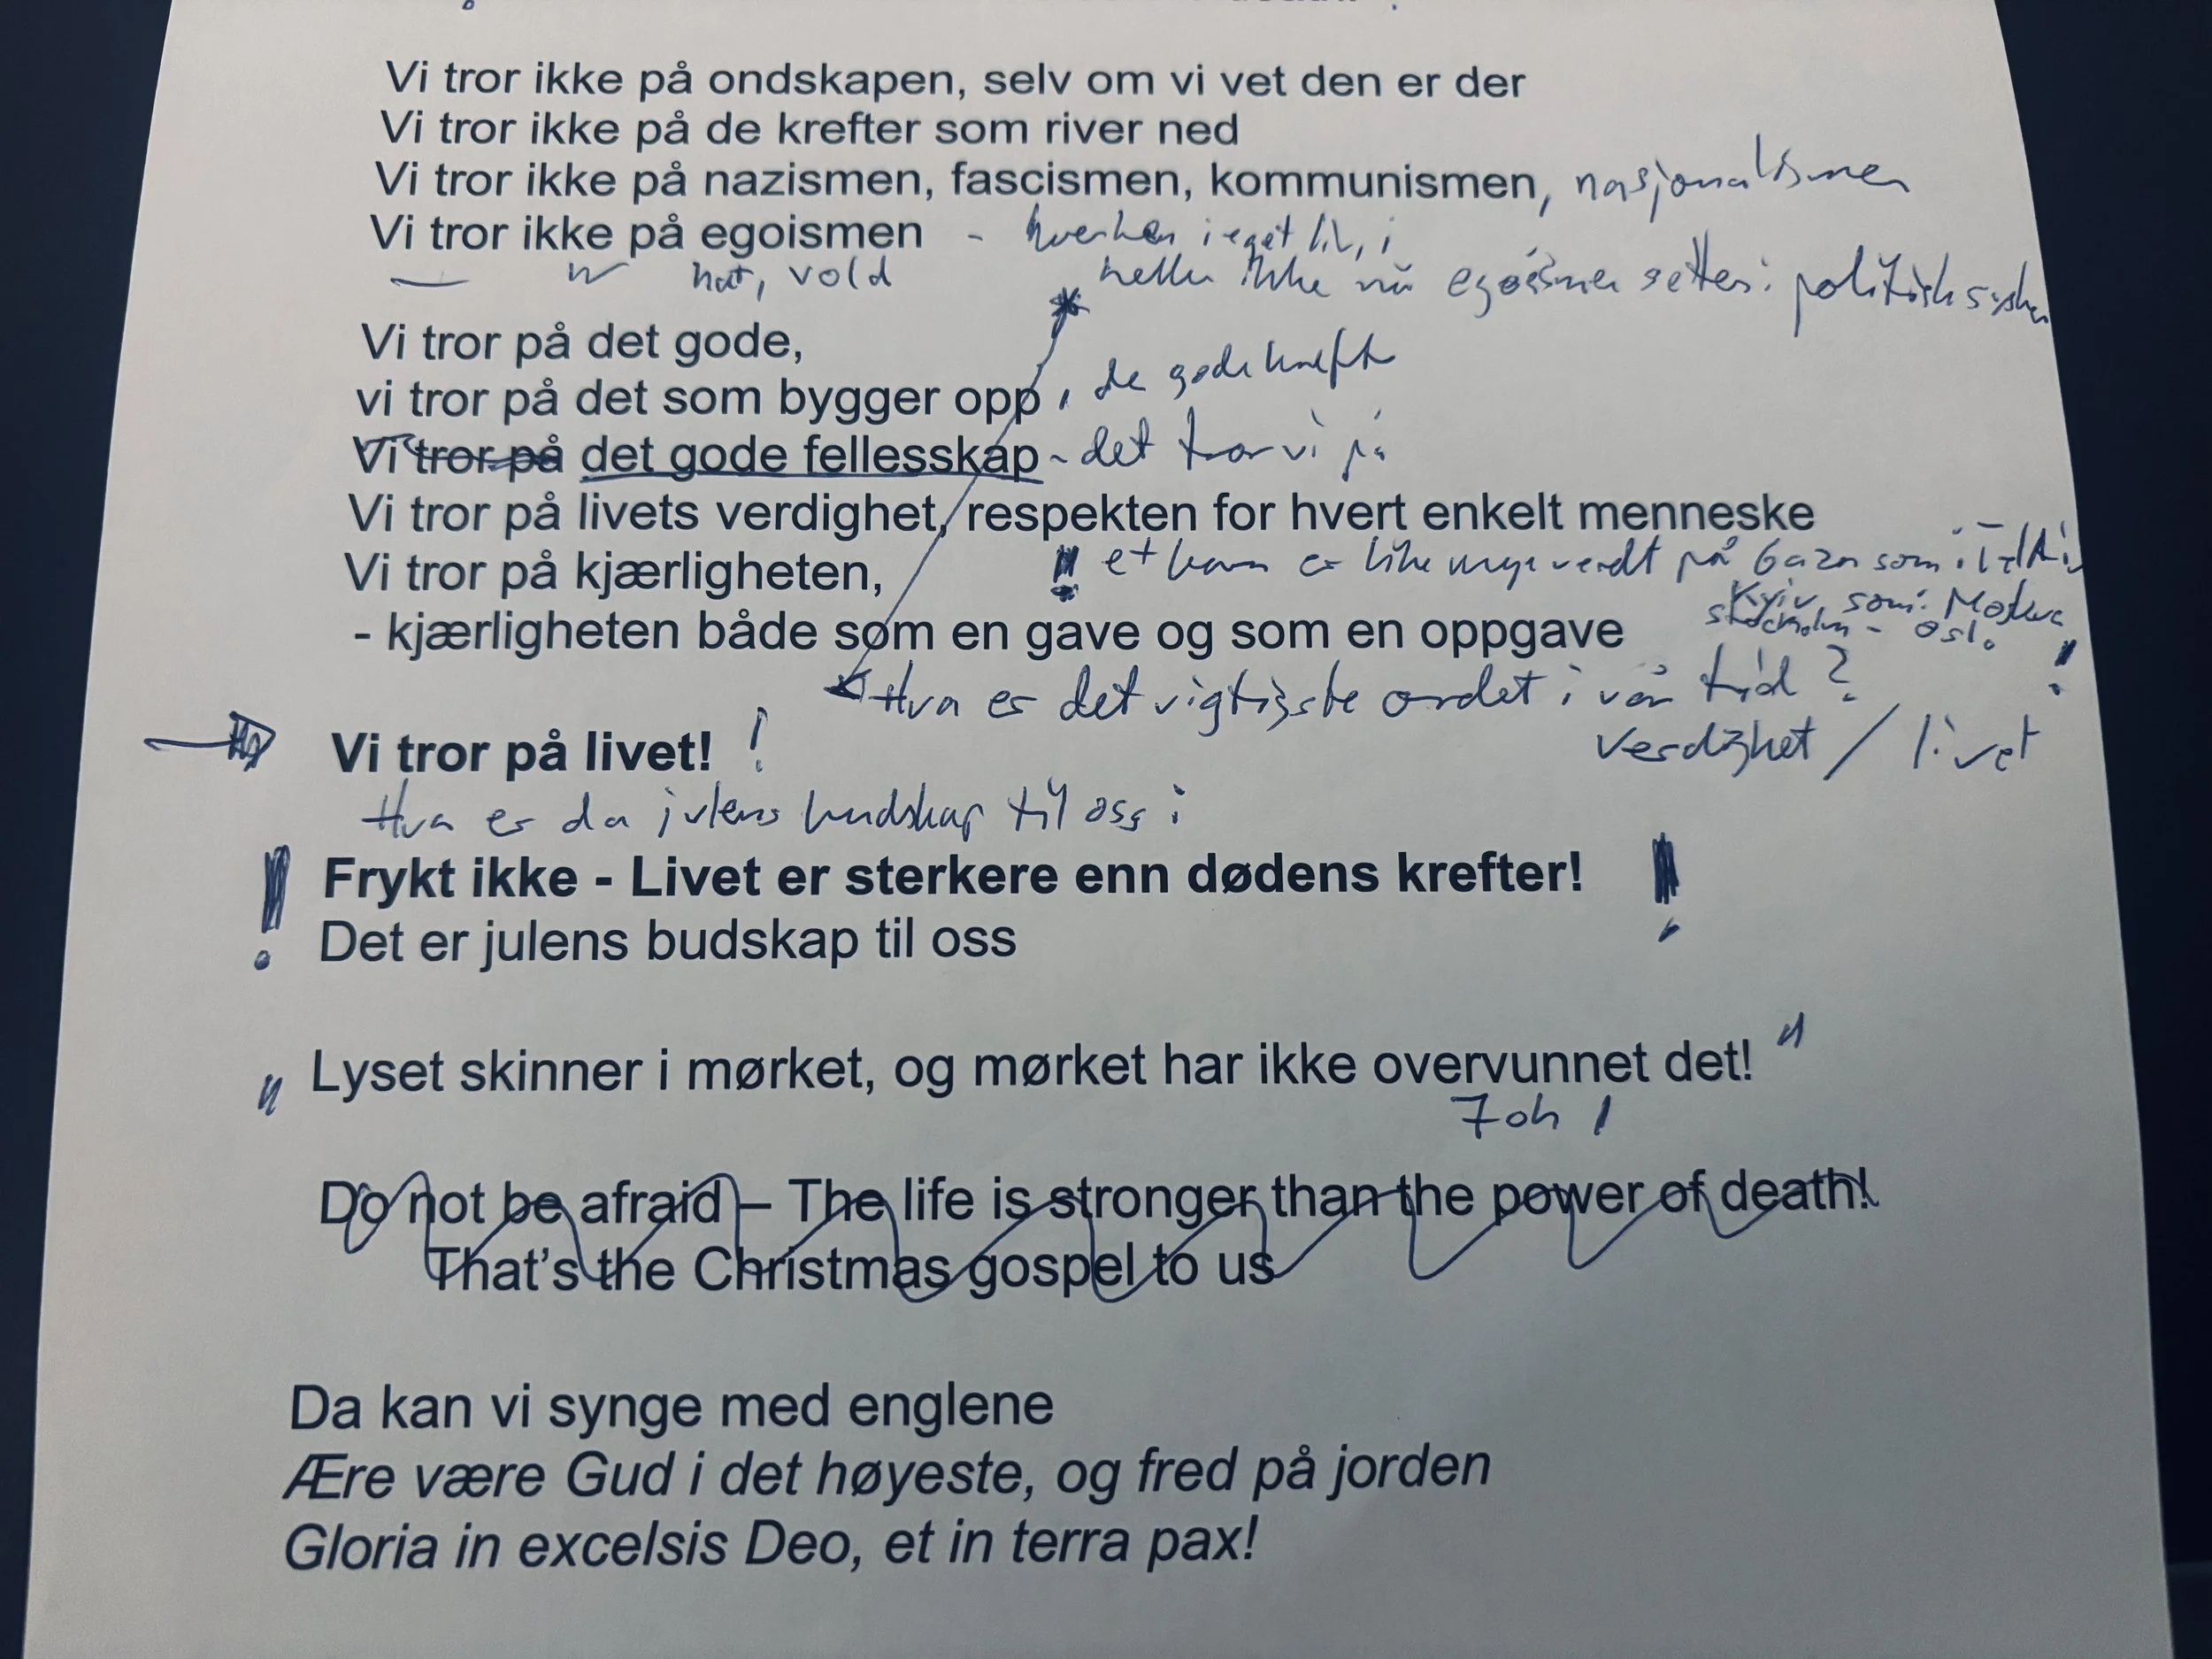 Vi tror ikke på ondskapen, selv om vi vet den er der
Vi tror ikke på de krefter som river ned
Vi tror ikke på nazismen, fascismen, kommunismen, nasjonalismen
Vi tror ikke på egoismen - hverken i eget liv, i
— " — hat, vold
heller ikke når egoismen settes i politisk system
Vi tror på det gode,
vi tror på det som bygger opp, de gode krefter
Vi tror på det gode fellesskap - det tror vi på
Vi tror på livets verdighet, respekten for hvert enkelt menneske
Vi tror på kjærligheten, ! et barn er like mye verdt på Gaza som i Tel
Kyiv som i Moskva
Stockholm - Oslo !
- kjærligheten både som en gave og som en oppgave
Hva er det vigtigste ordet i vår tid?
Verdighet / livet
Vi tror på livet! !
Hva er da julens budskap til oss :
! Frykt ikke - Livet er sterkere enn dødens krefter! !
Det er julens budskap til oss
" Lyset skinner i mørket, og mørket har ikke overvunnet det! "
Joh 1
Do not be afraid – The life is stronger than the power of death!
That's the Christmas gospel to us
Da kan vi synge med englene
Ære være Gud i det høyeste, og fred på jorden
Gloria in excelsis Deo, et in terra pax!